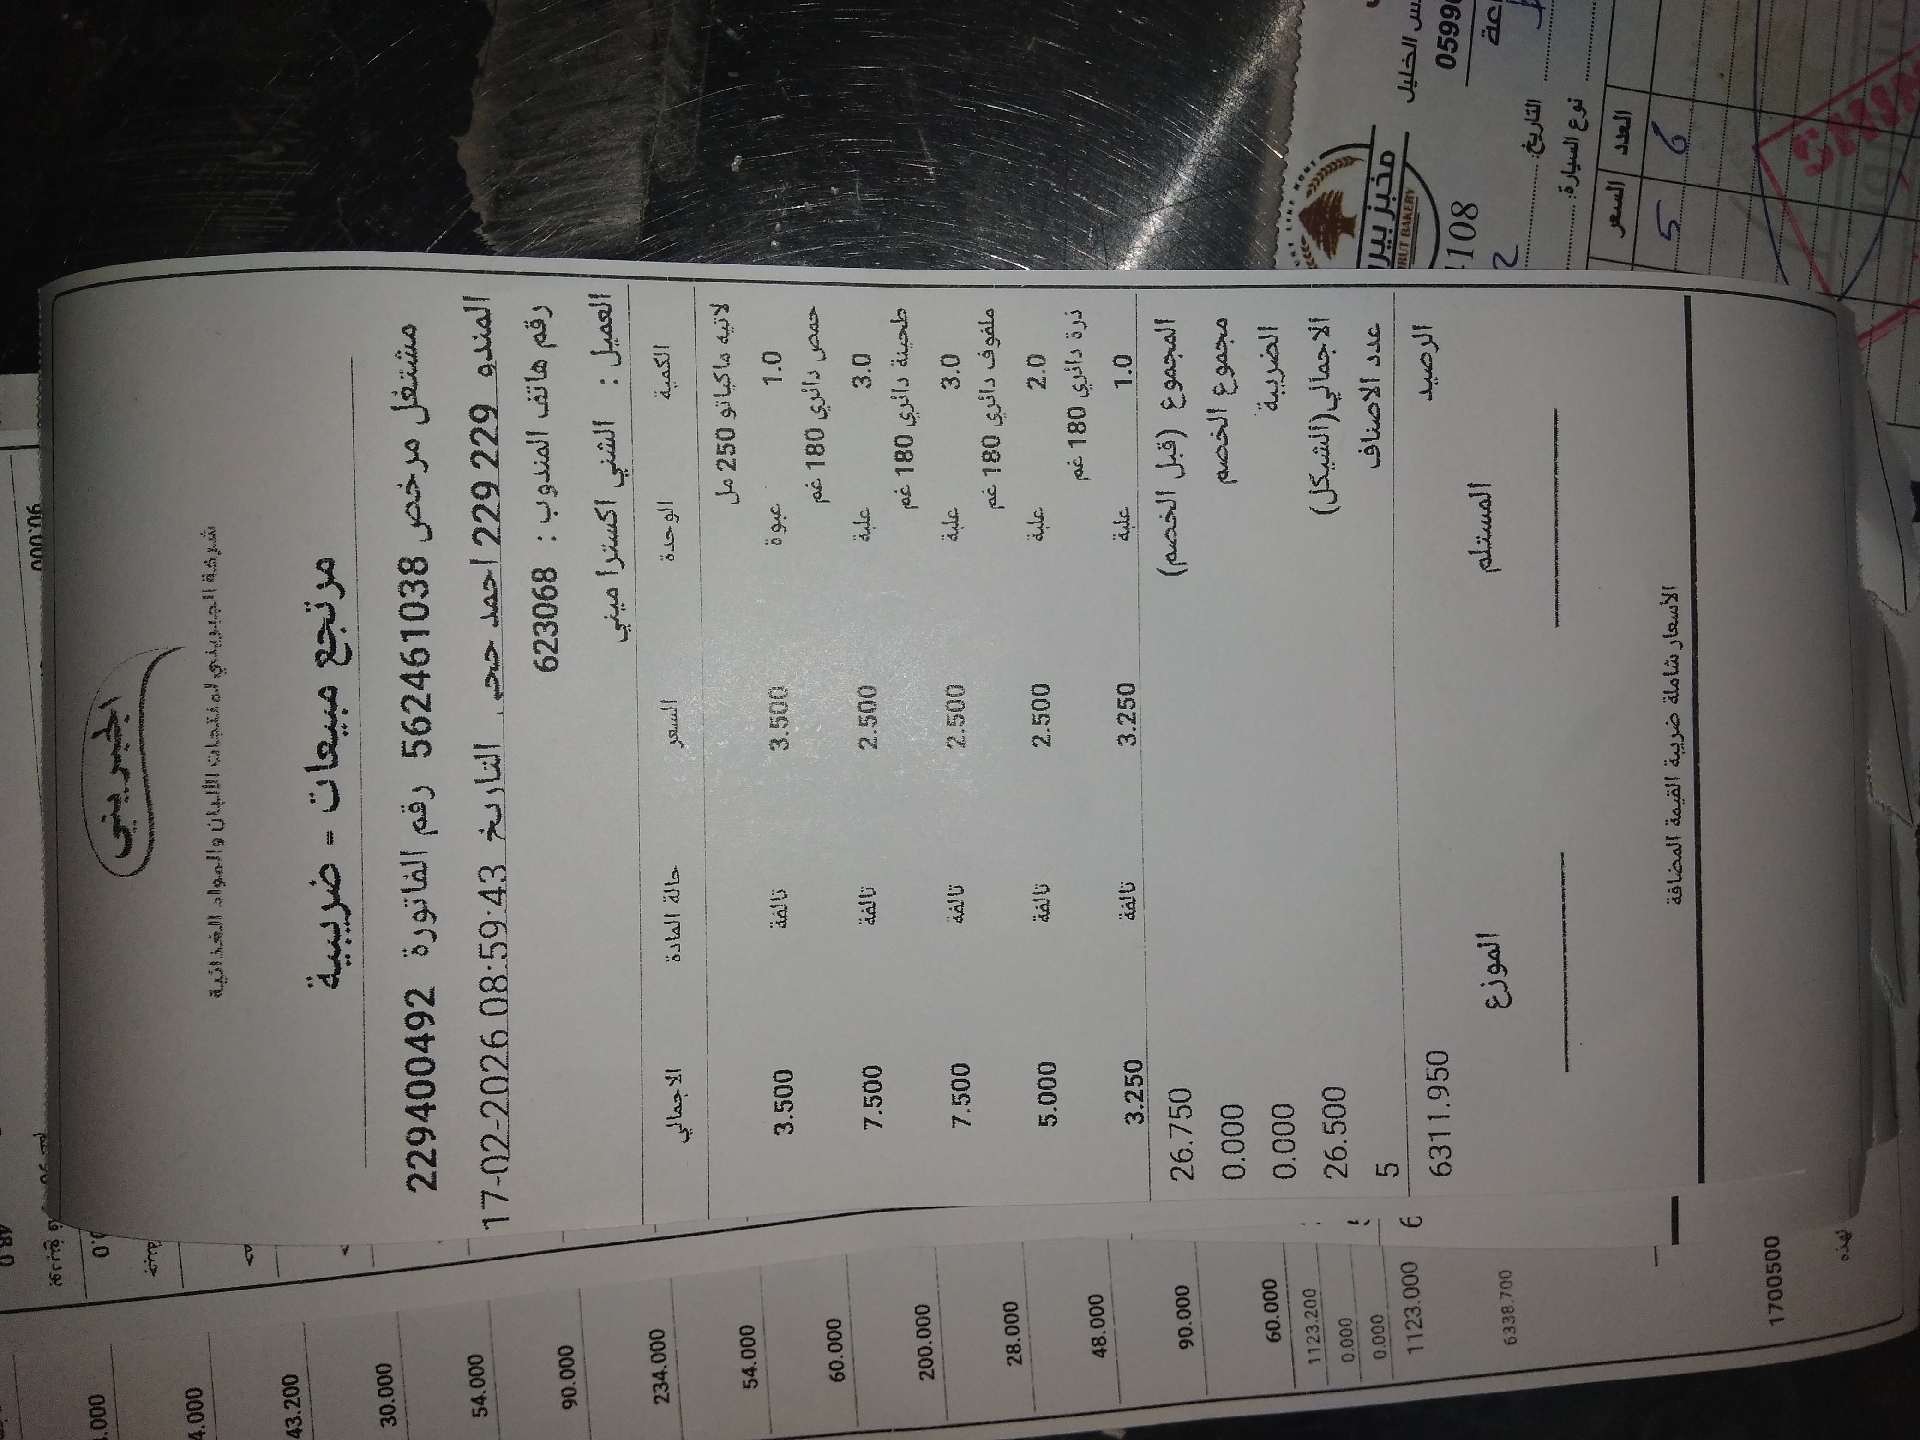 الجبريني
شركة الجبريني لمنتجات الالبان والمواد الغذائية
مرتجع مبيعات - ضريبية
مشتغل مرخص 562461038 رقم الفاتورة 229400492
المندو 229 229 احمد حج التاريخ 17-02-2026 08:59:43
رقم هاتف المندوب : 623068
العميل : الشني اكسترا ميني
الكمية الوحدة السعر حالة المادة الاجمالي
لاتيه ماكياتو 250 مل
1.0 عبوة 3.500 تالفة 3.500
حمص دائري 180 غم
3.0 علبة 2.500 تالفة 7.500
طحينة دائري 180 غم
3.0 علبة 2.500 تالفة 7.500
ملفوف دائري 180 غم
2.0 علبة 2.500 تالفة 5.000
ذرة دائري 180 غم
1.0 علبة 3.250 تالفة 3.250
المجموع (قبل الخصم) 26.750
مجموع الخصم 0.000
الضريبة 0.000
الاجمالي(الشيكل) 26.500
عدد الاصناف 5
الرصيد 6311.950
المستلم الموزع
الأسعار شاملة ضريبة القيمة المضافة
90.000
48.0
0.0
.000
4.000
43.200
30.000
54.000
90.000
234.000
54.000
60.000
200.000
28.000
48.000
90.000
60.000
1123.200
0.000
0.000
1123.000
6338.700
1700500
بهذه
الخليل
0599
مخبز بير
RUT BAKERY
4108
التاريخ:
نوع السيارة:
العدد السعر
6 5